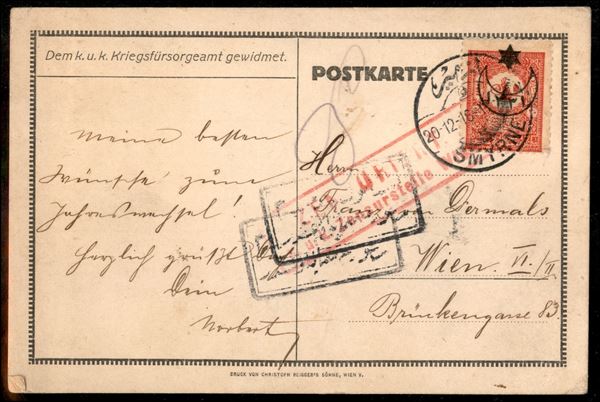 Dem k. u. k. Kriegsfürsorgeamt gewidmet.
POSTKARTE
20-12-16
SMYRNE
Meine besten
Wünsche zum
Jahreswechsel!
Herzlich grüßt D
Dein
Norbert
Herrn
Franz Dermals
Wien. VI./II
Brückengasse 83.
Zensurstelle
DRUCK VON CHRISTOPH REISSER'S SÖHNE, WIEN V.